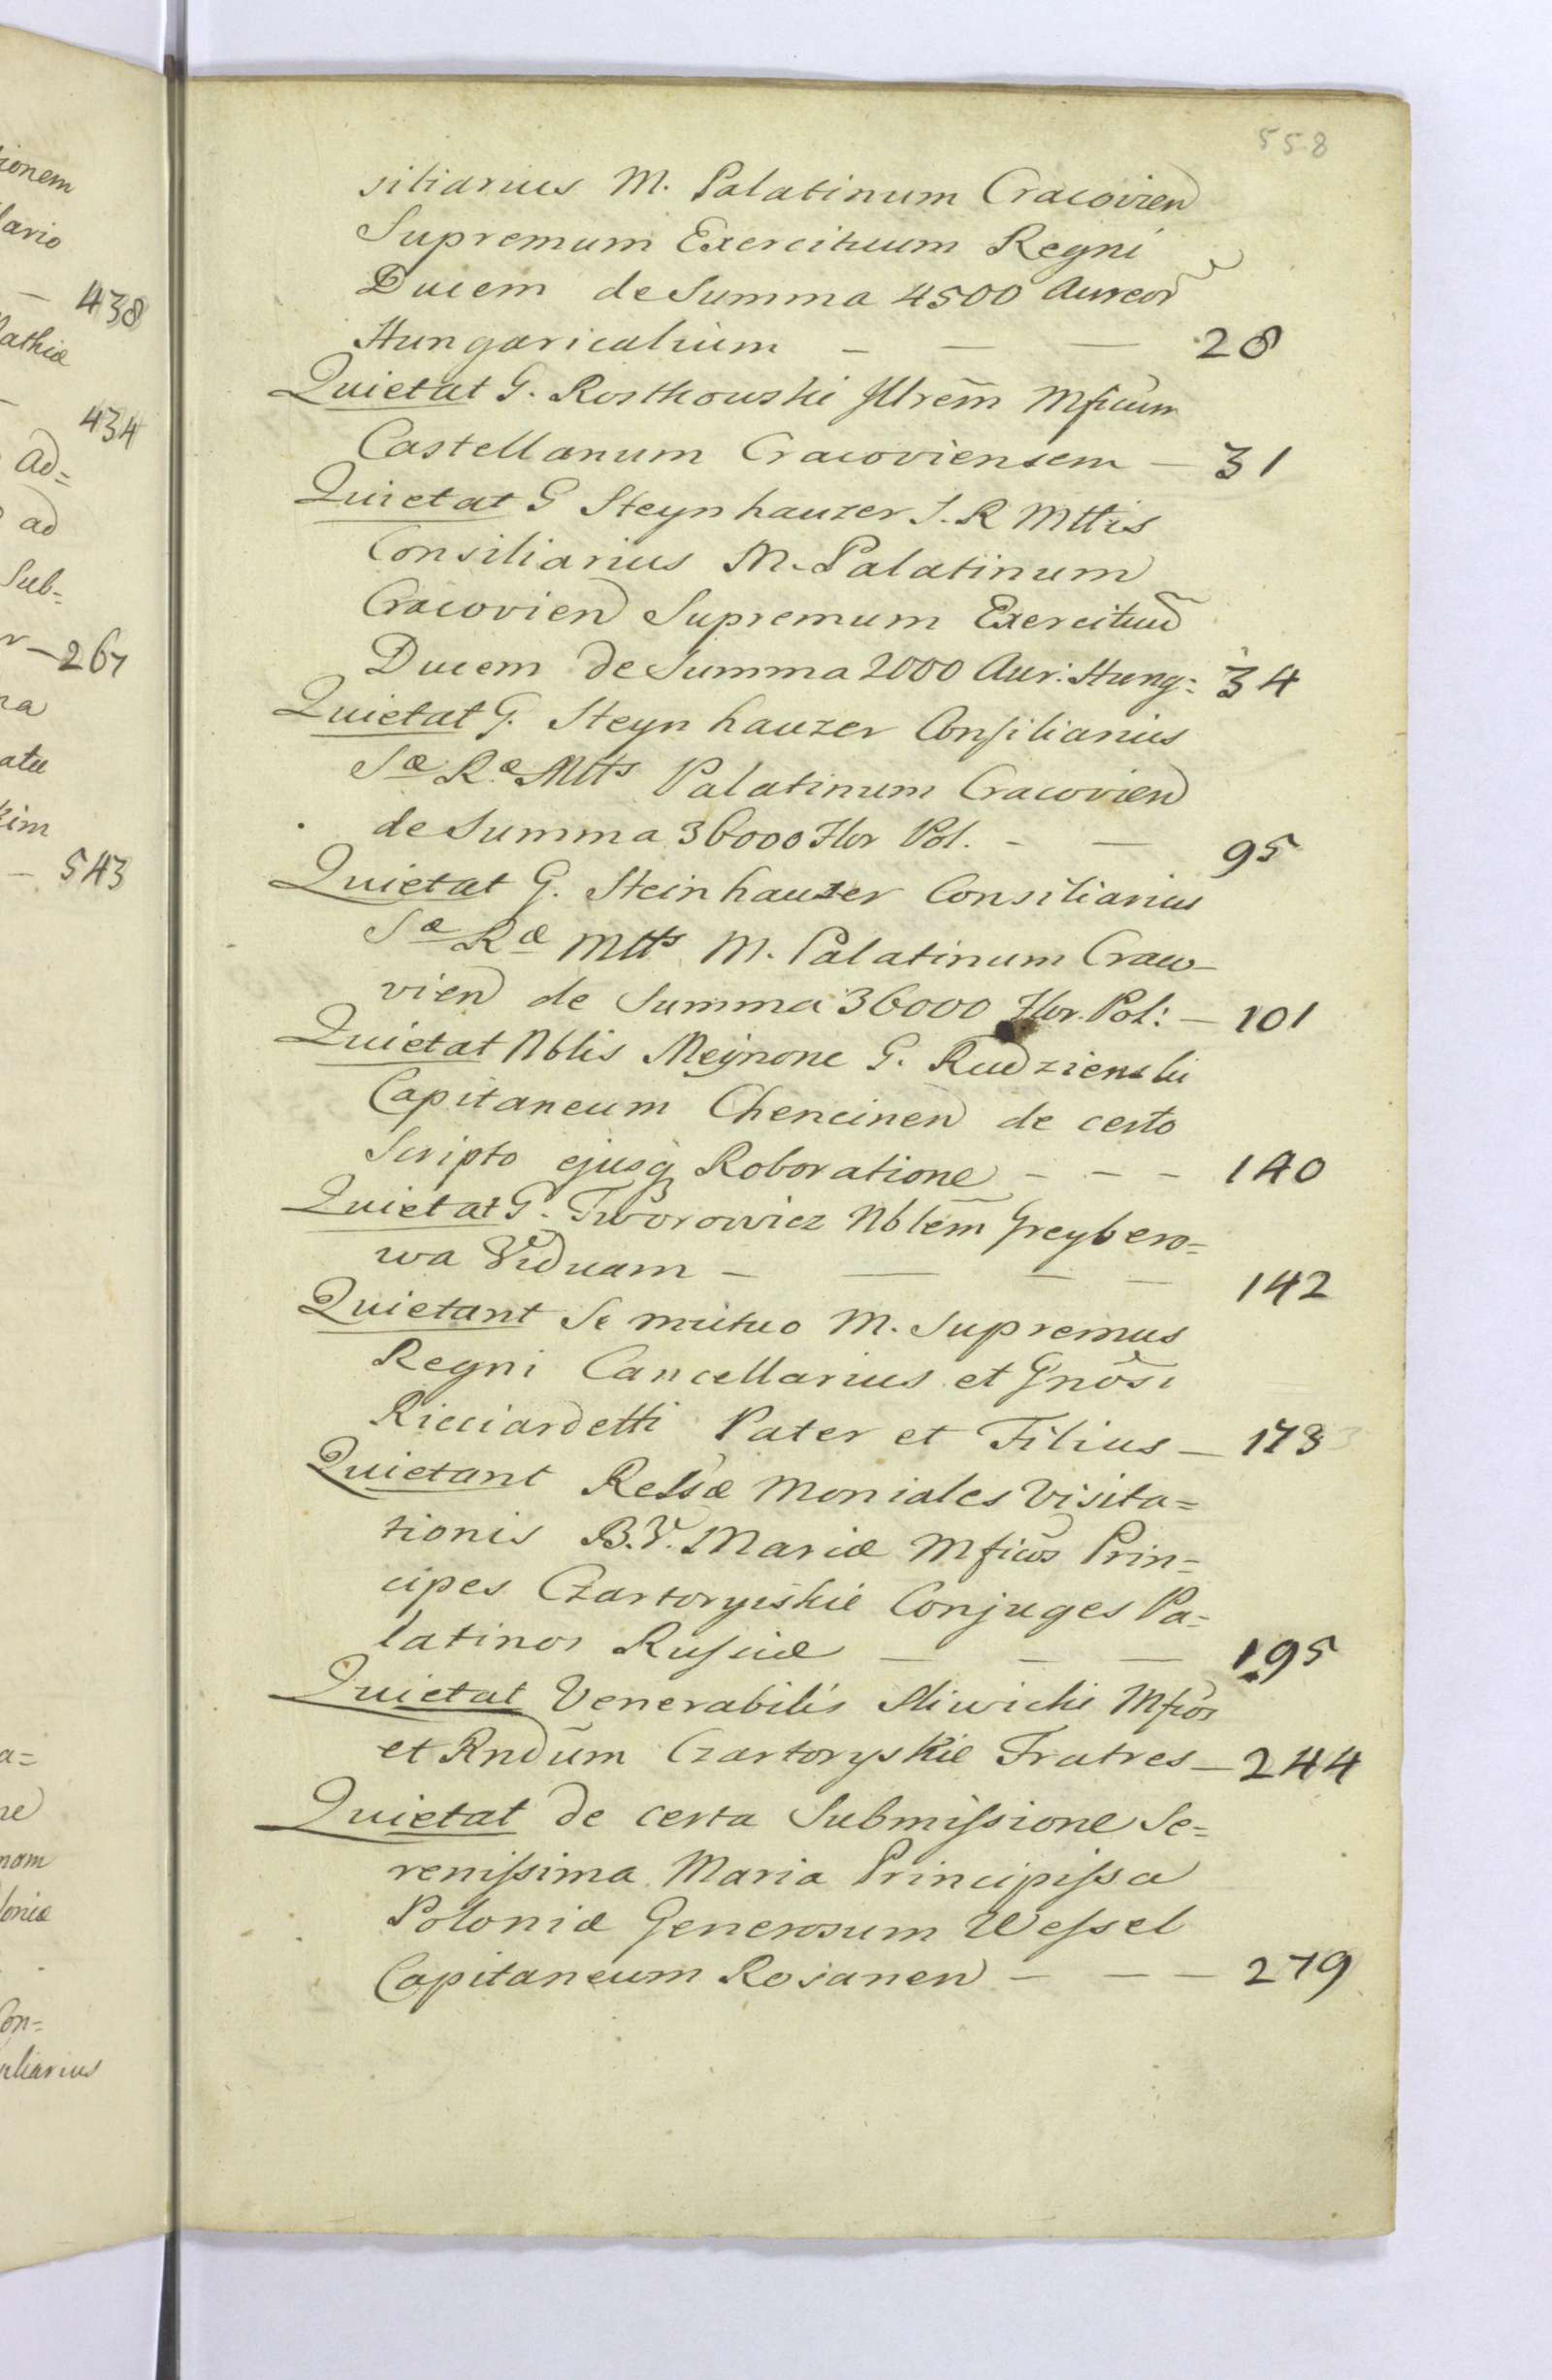 ionem
lario
— 438
athiæ
— 434
Ad=
ad
Sub=
— 267
na
atu
kim
— 543
a=
ne
nam
loniæ
Con=
iliarius
558
siliarius M. Palatinum Cracovien
Supremum Exercituum Regni
Ducem de Summa 4500 Aureor
Hungaricalium — — — 28
Quietat G. Rostkowski Illrem̃ Mficum
Castellanum Cracoviensem — 31
Quietat G Steynhauzer S. R Mttis
Consiliarius M. Palatinum
Cracovien Supremum Exercituũ
Ducem de Summa 2000 Aur: Hung: 34
Quietat G. Steynhauzer Consiliarius
Sæ Ræ Mtts Palatinum Cracovien
de Summa 36000 Flor Pol. — — 95
Quietat G. Steinhauzer Consiliarius
Sæ Ræ Mtts M. Palatinum Craco-
vien de Summa 36000 Flor. Pol: — 101
Quietat Nblis Mejnone G. Rudzienski
Capitaneum Chencinen de certo
Scripto ejusq Roboratione — — — 140
Quietat G. Tworowicz Nblem̃ Greybero=
wa Viduam — — — — 142
Quietant Se mutuo M. Supremus
Regni Cancellarius et Gnõsi
Ricciardetti Pater et Filius — 173
Quietant Relsæ Moniales Visita=
tionis B.V. Mariæ Mficos Prin=
cipes Czartoryiskie Conjuges Pa=
latinos Russiæ — — — 195
Quietat Venerabilis Sliwicki Mficos
et Rndũm Czartoryskie Fratres — 244
Quietat de certa Submissione Se=
renissima Maria Principissa
Poloniæ Generosum Wessel
Capitaneum Rosanen — — — 279